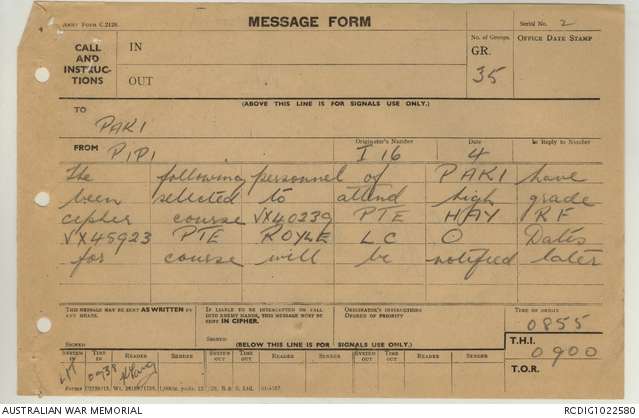 ARMY FORM C.2128.
MESSAGE FORM
Serial No. 2
CALL AND INSTRUC-TIONS
IN
OUT
No. of Groups.
GR.
35
OFFICE DATE STAMP
(ABOVE THIS LINE IS FOR SIGNALS USE ONLY.)
TO
PAKI
FROM PIPI
Originator's Number
I 16
Date
4
In Reply to Number
The following personnel of PAKI have
been selected to attend high grade
cipher course VX40239 PTE HAY RF
VX45923 PTE ROYLE LC O Dates
for course will be notified later
THIS MESSAGE MAY BE SENT AS WRITTEN BY
ANY MEANS.
SIGNED
IF LIABLE TO BE INTERCEPTED OR FALL
INTO ENEMY HANDS, THIS MESSAGE MUST BE
SENT IN CIPHER.
SIGNED
ORIGINATOR'S INSTRUCTIONS
DEGREE OF PRIORITY
TIME OF ORIGIN
0855
(BELOW THIS LINE IS FOR SIGNALS USE ONLY.)
T.H.I.
0900
T.O.R.
SYSTEM IN
TIME IN
READER
SENDER
SYSTEM OUT
TIME OUT
READER
SENDER
SYSTEM OUT
TIME OUT
READER
SENDER
0938
AUSTRALIAN WAR MEMORIAL
RCDIG1022580